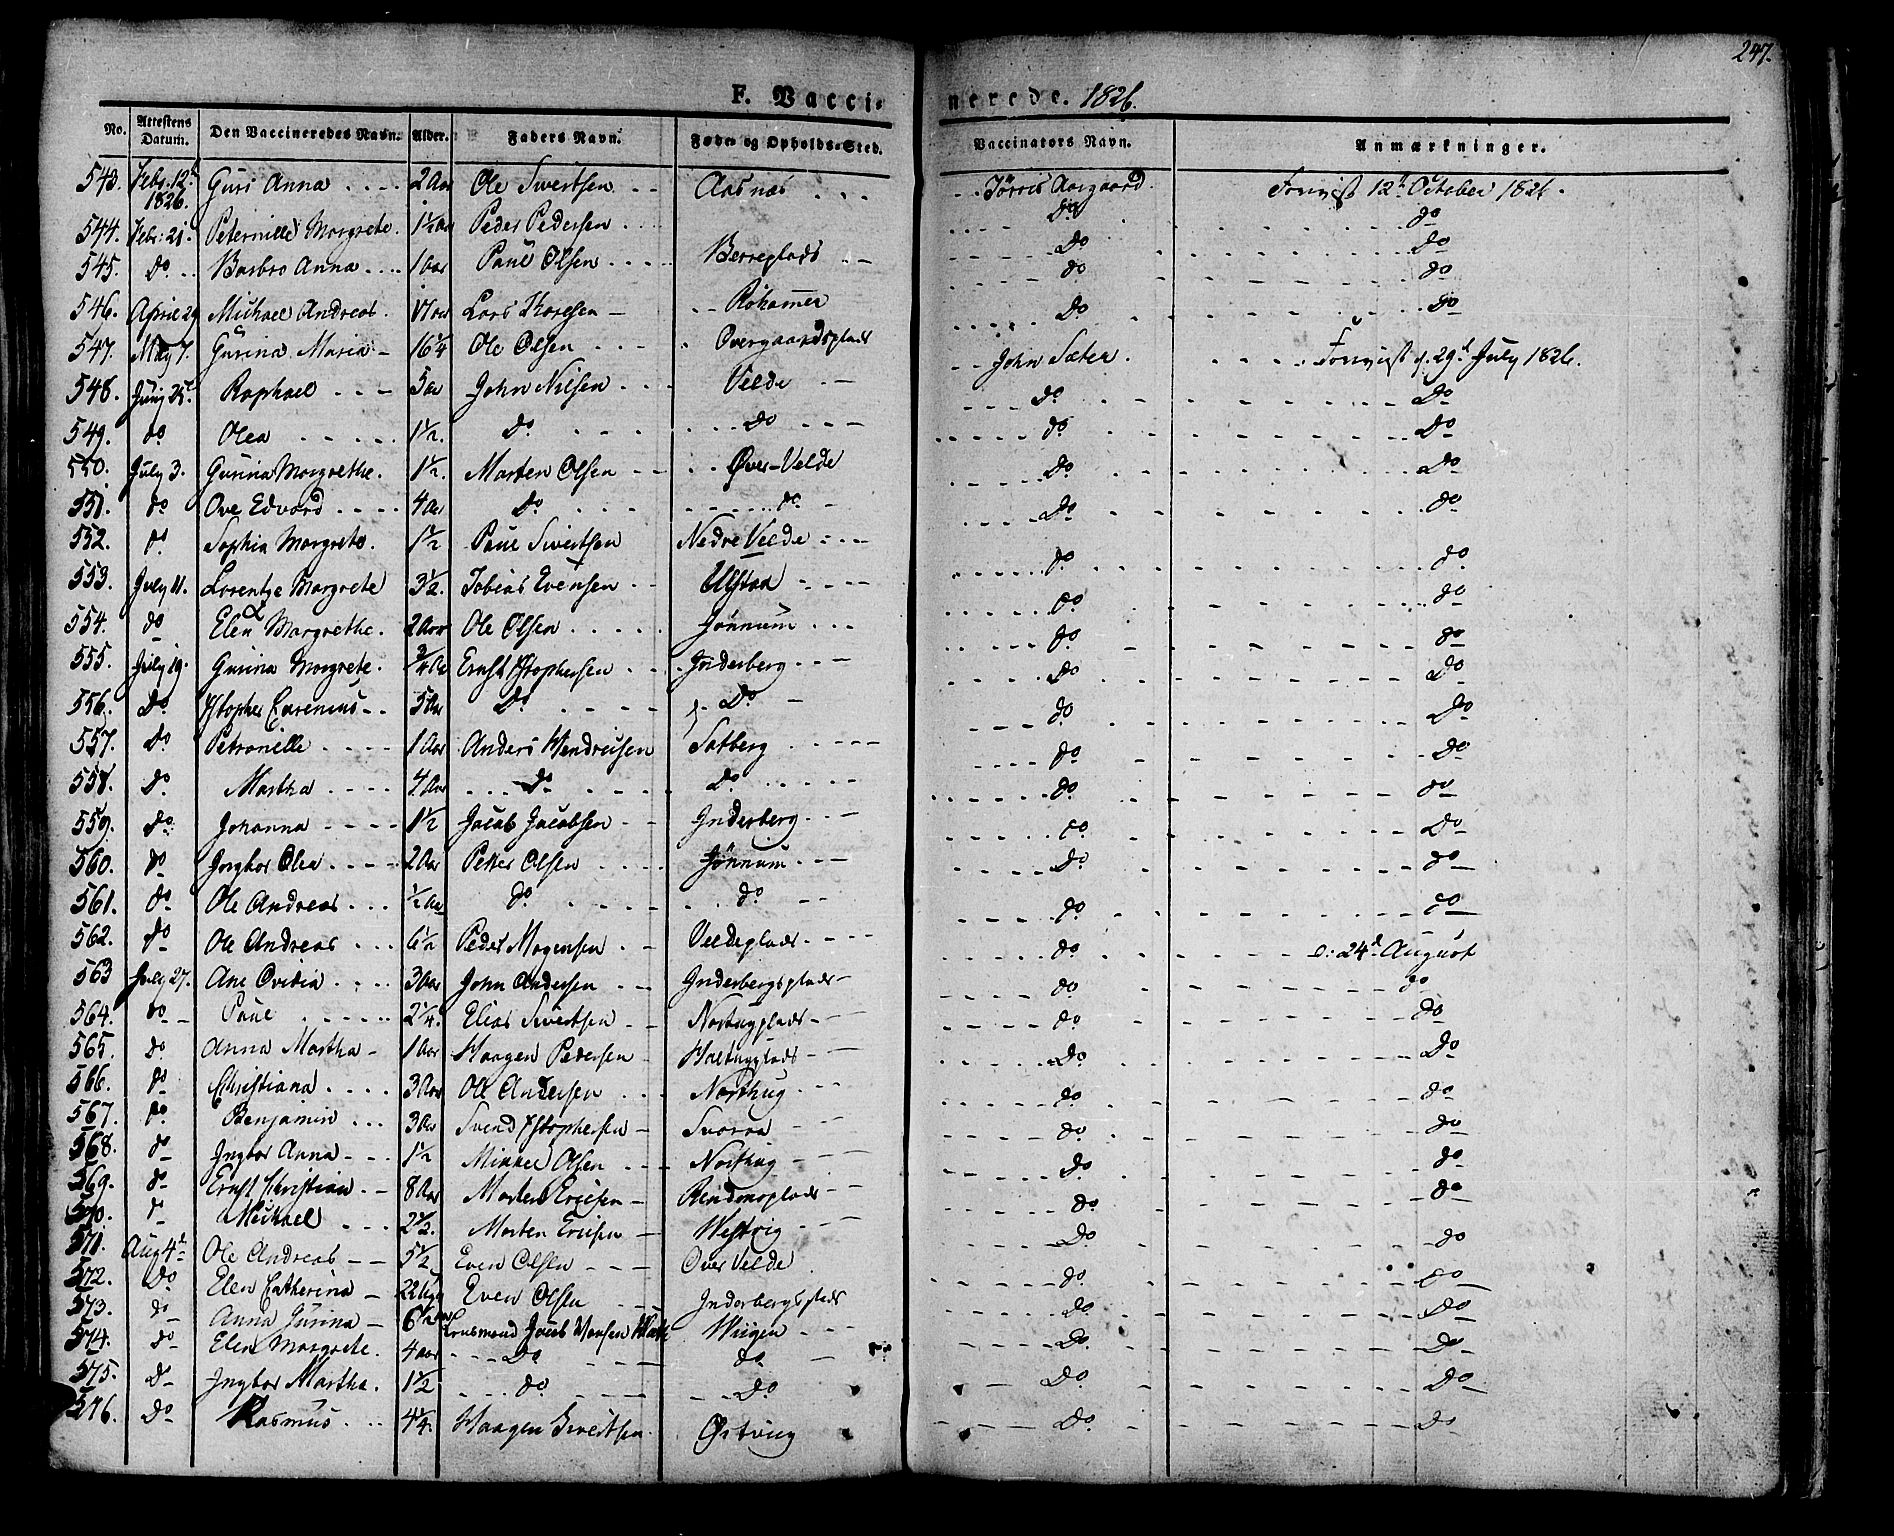 247.
F. Vaccinerede. 1826.
No. Attestens Datum. Den Vaccineredes Navn. Alder. Faders Navn. Føde- og Opholds-Sted. Vaccinators Navn. Anmærkninger.
543. Febr. 12t 1826. Guri Anna 2 Aar Ole Sivertsen Aasnæs Jørris Aargaard. Forevist 12t October 1826.
544. Febr: 21. Peternille Margrete. 1½ Aar Peder Pedersen do do
545. Do Barbro Anna 1 Aar Paul Olsen Berreplads Do Do
546. April 29 Michael Andreas. 17 Aar Lars Thoresen Røhammer Do do
547. May 7. Gurina Maria 16¼ Ole Olsen Overgaardsplads John Sæter. Forevist d. 29d July 1826.
548. Juny 25t Raphael 5 Aar John Nilsen Velde Do Do
549. do Olea 1½. Do Do do Do
550. July 3. Gurina Margrethe. 1½. Morten Olsen Øver-Velde Do Do
551. do Ove Edvard 4 Aar Do do Do do
552. do Sophia Margrete. 1½ Paul Sivertsen Nedre Velde do do
553. July 11. Lorentze Margrete 3½. Tobias Evensen Ulstad do do
554. do Elen Margrethe. 2 Aar Ole Olsen Jønnum do do
555. July 19. Gurina Margrete. ¾ Aar Ernst Xstophersen Inderberg Do Do
556. Do Xstopher 5 Aar Do Do do Do
557. do Petronille 1 Aar Anders Hendricsen Salberg do Do
558. Do. Martha 4 Aar do Do do do
559. Do Johanna 1½ Jacob Jacobsen Inderberg do Do
560. do Ingbor Olea 2 Aar Petter Olsen Jønnum Do do
561. do Ole Andreas ½ Aar do do do do
562. do Ole Andreas 6½ Peder Mogensen Veldeplads do d. 24d August
563 July 27. Ane Ovidia 3 Aar John Andersen Inderbergsplads do do
564. do Paul 2¼. Elias Sivertsen Nortugplads do do
565. do Anna Martha 1 Aar Haagen Pedersen Haltugplads Do Do
566. do Christiana 3 Aar Ole Andersen Northug do do
567. do. Benjamin 3 Aar Svend Xstophersen Svorra do do
568. do Ingbor Anna 1½ Mikkel Olsen Northug do do
569. do Ernst Christian 8 Aar Morten Ericsen do do
570. do Michael 2½. Morten Ericsen Westvig Do do
571. Aug 4d Ole Andreas 5½ Even Olsen Over Velde do do
572. Do Elen Catherina 22 Uger Even Olsen Inderbergsplads do Do
573. do Anna Gurina 6½ Aar Jacob Hansen Wiigen Do Do
574. do Elen Margrete. 4 Aar Do do Do Do
575. D Ingbor Martha. 1½ do Do Do Do
576. Do Rasmus 4¼. Haagen Sivertsen Østvig Do Do